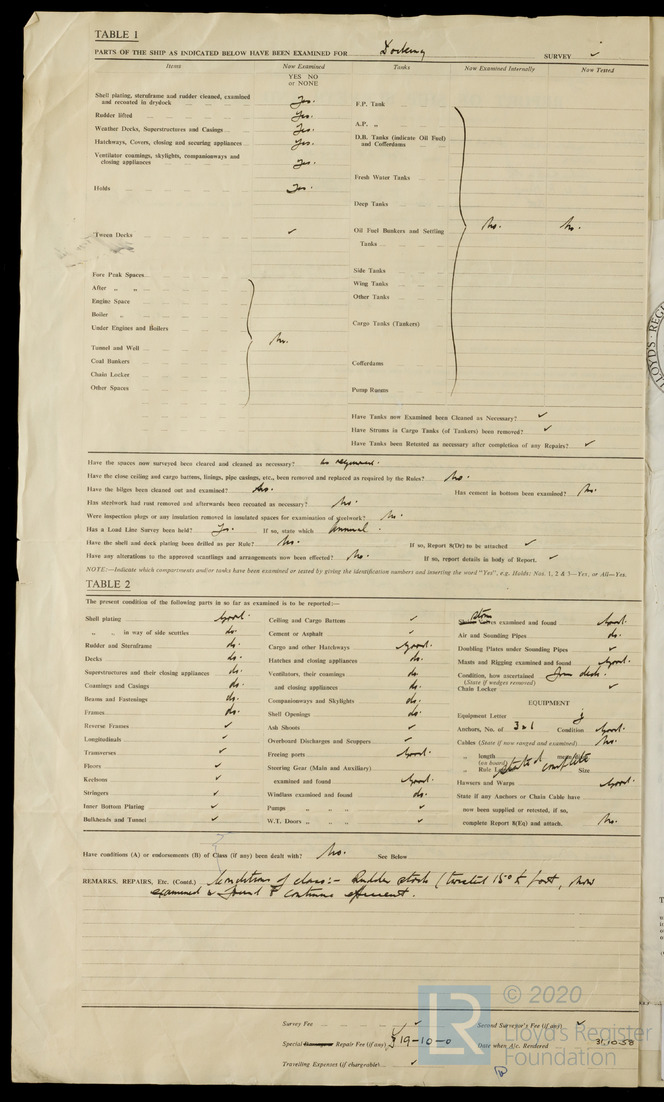 TABLE 1
PARTS OF THE SHIP AS INDICATED BELOW HAVE BEEN EXAMINED FOR Docking SURVEY
Items Now Examined Tanks Now Examined Internally Now Tested
YES NO or NONE
Shell plating, sternframe and rudder cleaned, examined and recoated in drydock Yes.
Rudder lifted Yes.
Weather Decks, Superstructures and Casings Yes.
Hatchways, Covers, closing and securing appliances Yes.
Ventilator coamings, skylights, companionways and closing appliances Yes.
Holds Yes.
'Tween Decks ✓
Fore Peak Spaces
After „ „
Engine Space
Boiler „
Under Engines and Boilers
No.
Tunnel and Well
Coal Bunkers
Chain Locker
Other Spaces
F.P. Tank
A.P. „
D.B. Tanks (indicate Oil Fuel) and Cofferdams
Fresh Water Tanks
Deep Tanks
Oil Fuel Bunkers and Settling Tanks No. No.
Side Tanks
Wing Tanks
Other Tanks
Cargo Tanks (Tankers)
Cofferdams
Pump Rooms
Have Tanks now Examined been Cleaned as Necessary? ✓
Have Strums in Cargo Tanks (of Tankers) been removed? ✓
Have Tanks been Retested as necessary after completion of any Repairs? ✓
Have the spaces now surveyed been cleared and cleaned as necessary? as required.
Have the close ceiling and cargo battens, linings, pipe casings, etc., been removed and replaced as required by the Rules? No.
Have the bilges been cleaned out and examined? No. Has cement in bottoms been examined? No.
Has steelwork had rust removed and afterwards been recoated as necessary? No.
Were inspection plugs or any insulation removed in insulated spaces for examination of steelwork? No.
Has a Load Line Survey been held? Yes. If so, state which annual.
Have the shell and deck plating been drilled as per Rule? No. If so, Report 8(Dr) to be attached ✓
Have any alterations to the approved scantlings and arrangements now been effected? No. If so, report details in body of Report. ✓
NOTE:—Indicate which compartments and/or tanks have been examined or tested by giving the identification numbers and inserting the word "Yes", e.g. Holds: Nos. 1, 2 & 3—Yes, or All—Yes.
TABLE 2
The present condition of the following parts in so far as examined is to be reported:—
Shell plating Good.
„ „ in way of side scuttles do.
Rudder and Sternframe do.
Decks do.
Superstructures and their closing appliances do.
Coamings and Casings do.
Beams and Fastenings do.
Frames do.
Reverse Frames ✓
Longitudinals ✓
Transverses ✓
Floors ✓
Keelsons ✓
Stringers ✓
Inner Bottom Plating ✓
Bulkheads and Tunnel ✓
Ceiling and Cargo Battens ✓
Cement or Asphalt ✓
Cargo and other Hatchways Good.
Hatches and closing appliances do.
Ventilators, their coamings do.
and closing appliances do.
Companionways and Skylights do.
Shell Openings do.
Ash Shoots ✓
Overboard Discharges and Scuppers ✓
Freeing ports Good.
Steering Gear (Main and Auxiliary)
examined and found Good.
Windlass examined and found do.
Pumps „ „ „ ✓
W.T. Doors „ „ „ ✓
examined and found Good.
Air and Sounding Pipes do.
Doubling Plates under Sounding Pipes ✓
Masts and Rigging examined and found Good.
Condition, how ascertained from deck.
(State if wedges removed)
Chain Locker ✓
EQUIPMENT
Equipment Letter j
Anchors, No. of 3 & 1 Condition Good.
Cables (State if now ranged and examined) No.
„ length (on board) stated complete
„ Rule Size
Hawsers and Warps Good.
State if any Anchors or Chain Cable have
now been supplied or retested, if so,
complete Report 8(Eq) and attach. No.
Have conditions (A) or endorsements (B) of Class (if any) been dealt with? No. See Below
REMARKS. REPAIRS, Etc. (Contd.) Conditions of class:— Rudder stock (twisted 15° to port, now
examined & found & continues efficient.
Survey Fee ✓ Second Surveyor's Fee (if any) ✓
Special Repair Fee (if any) £19-10-0 Date when A/c. Rendered 31.10.58
Travelling Expenses (if chargeable) ✓
© 2020
LR
Lloyd's Register
Foundation
LLOYD'S REG